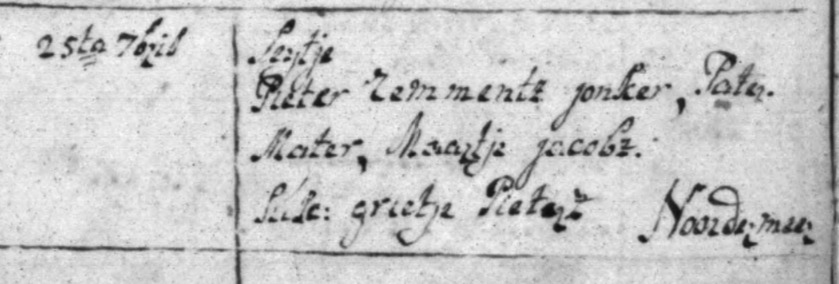 25ta 7bris
Seijtje
Pieter Remmentz jonker, Pater.
Mater, Maartje jacobz.
Susc: grietje Pieterz Noordermeer